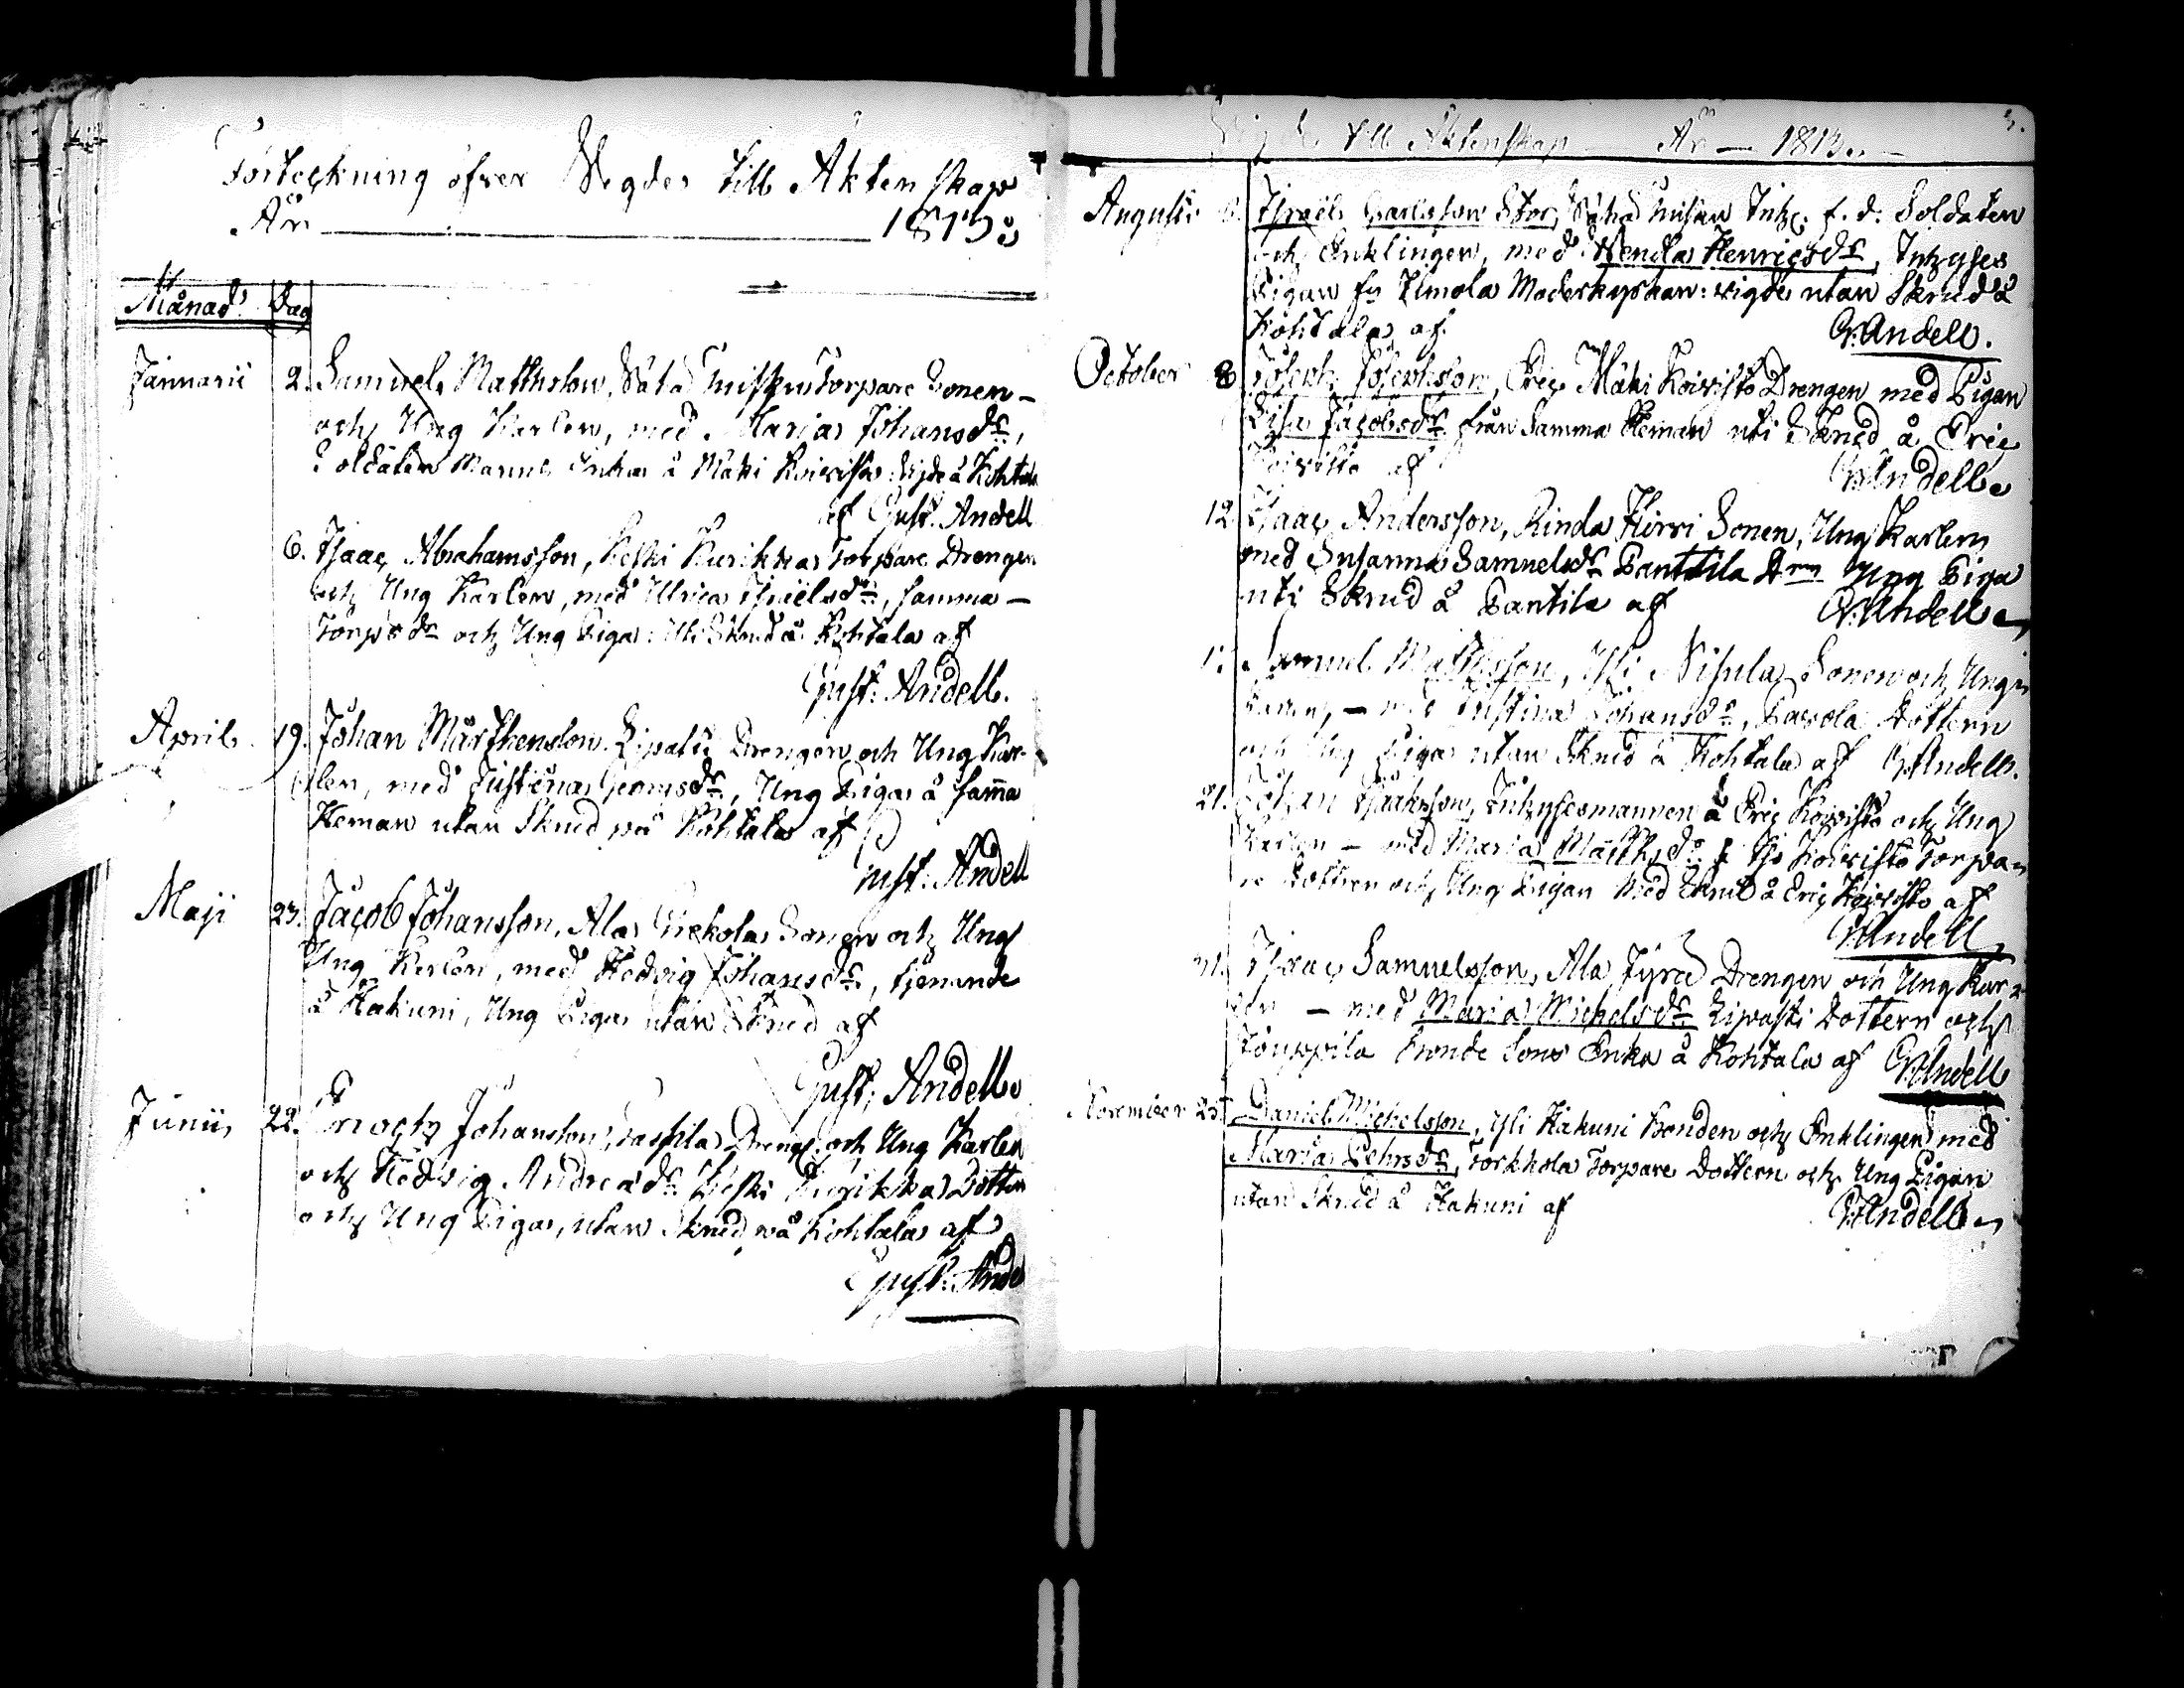 Förteckning öfver Wigde till Äktenskap
År 1813.
Månad Dag
Januarii 2. Samuel Mattsson, Säkä Torpare Sonen
och Ung Karlen, med Maria Johansdr,
Soldaten Manns Enka å Mäki Koivisto: Vigde å Kohtala
af Gust. Andell
6. Isaac Abrahamsson, Keski Kurikka Torpare Drengen
och Ung Karlen, med Ulrica Israelsdr, samma
Torps dr och Ung Piga: Uti Skrud å Kohtala af
Gust. Andell.
April 19. Johan Mårthensson Lipasti Drengen och Ung Kar-
len, med Justina Georgsdr, Ung Piga å samma
Heman utan Skrud på Kohtala af
Gust. Andell
Maji 23. Jacob Johansson, Ala Sonen och Ung
Ung Karlen, med Hedvig Johansdr, tjenande
å Hakuni, Ung Piga utan Skrud af
Gust. Andell
Junii 22. Enoch Johansson, Drengen och Ung Karlen
och Hedvig Andreædr Keski Kurikka Dotter
och Ung Piga, utan Skrud på Kohtala af
Gust. Ande
Vigde till Äktenskap År 1813. 3.
Augusti Israël Carlsson Stor, Säkä Inhs. f. d. Soldaten
och Enklingen, med Wendla Henricsdr, Inhyses
Pigan fr Ilmola Moderkyrkan: vigde utan Skrud å
Kohtala af G. Andell.
October 8 Joseph Josephsson, Eric Mäki Koivisto Drengen med Pigan
Lisa Jacobsdr från Samma Heman uti Skrud å Eric
Koivisto af G. Andell
12. Isaac Andersson, Rinda Hirvi Sonen, Ung Karlen
med Susanna Samuelsdr Panttila Ung Piga
uti Skrud å Pantila af G. Andell
Samuel Mattsson, Yli Nisula Sonen och Ung
Karlen, — med Justina Johansdr, Pavola Dottern
och Ung Piga utan Skrud å Kohtala af G. Andell.
21. Johan Isaksson, Inhysesmannen å Eric Koivisto och Ung
Karlen — med Maria Matthsdr Koivisto Torpa-
re dottren och Ung Pigan Med Skrud å Eric Koivisto af
G. Andell
Isaac Samuelsson, Ala Jyrä Drengen och Ung Kar-
len — med Maria Michelsdr Lipasti Dottern och
Bonde Sons Enka å Kohtala af G. Andell
November 25. Daniel Michelsson, Yli Hakuni Bonden och Enklingen med
Maria Pehrsdr, Torkkola Torpare Dottern och Ung Pigan
utan Skrud å Hakuni af G. Andell